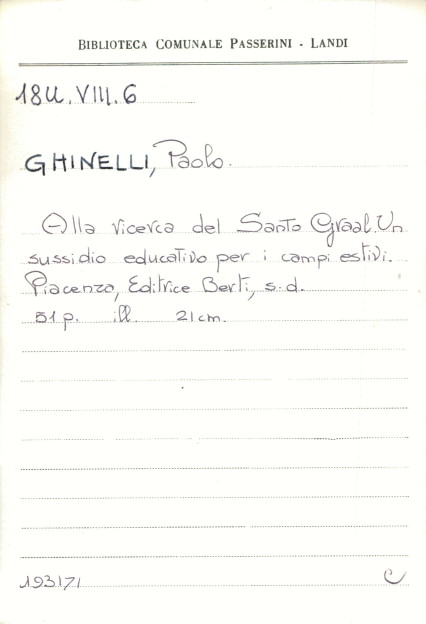 BIBLIOTECA COMUNALE PASSERINI - LANDI
18U.VIII.6
GHINELLI, Paolo.
Alla ricerca del Santo Graal. Un
sussidio educativo per i campi estivi.
Piacenza, Editrice Berti, s.d.
51 p. ill. 21 cm.
193171
C